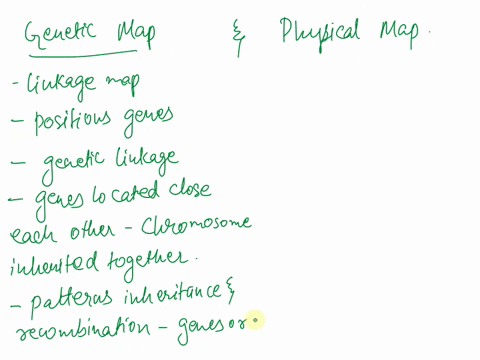 Genetic Map & Physical Map.
- linkage map
- positions genes
- genetic linkage
- genes located close
each other - Chromosome
inherited together.
- patterns inheritance &
recombination - genes or